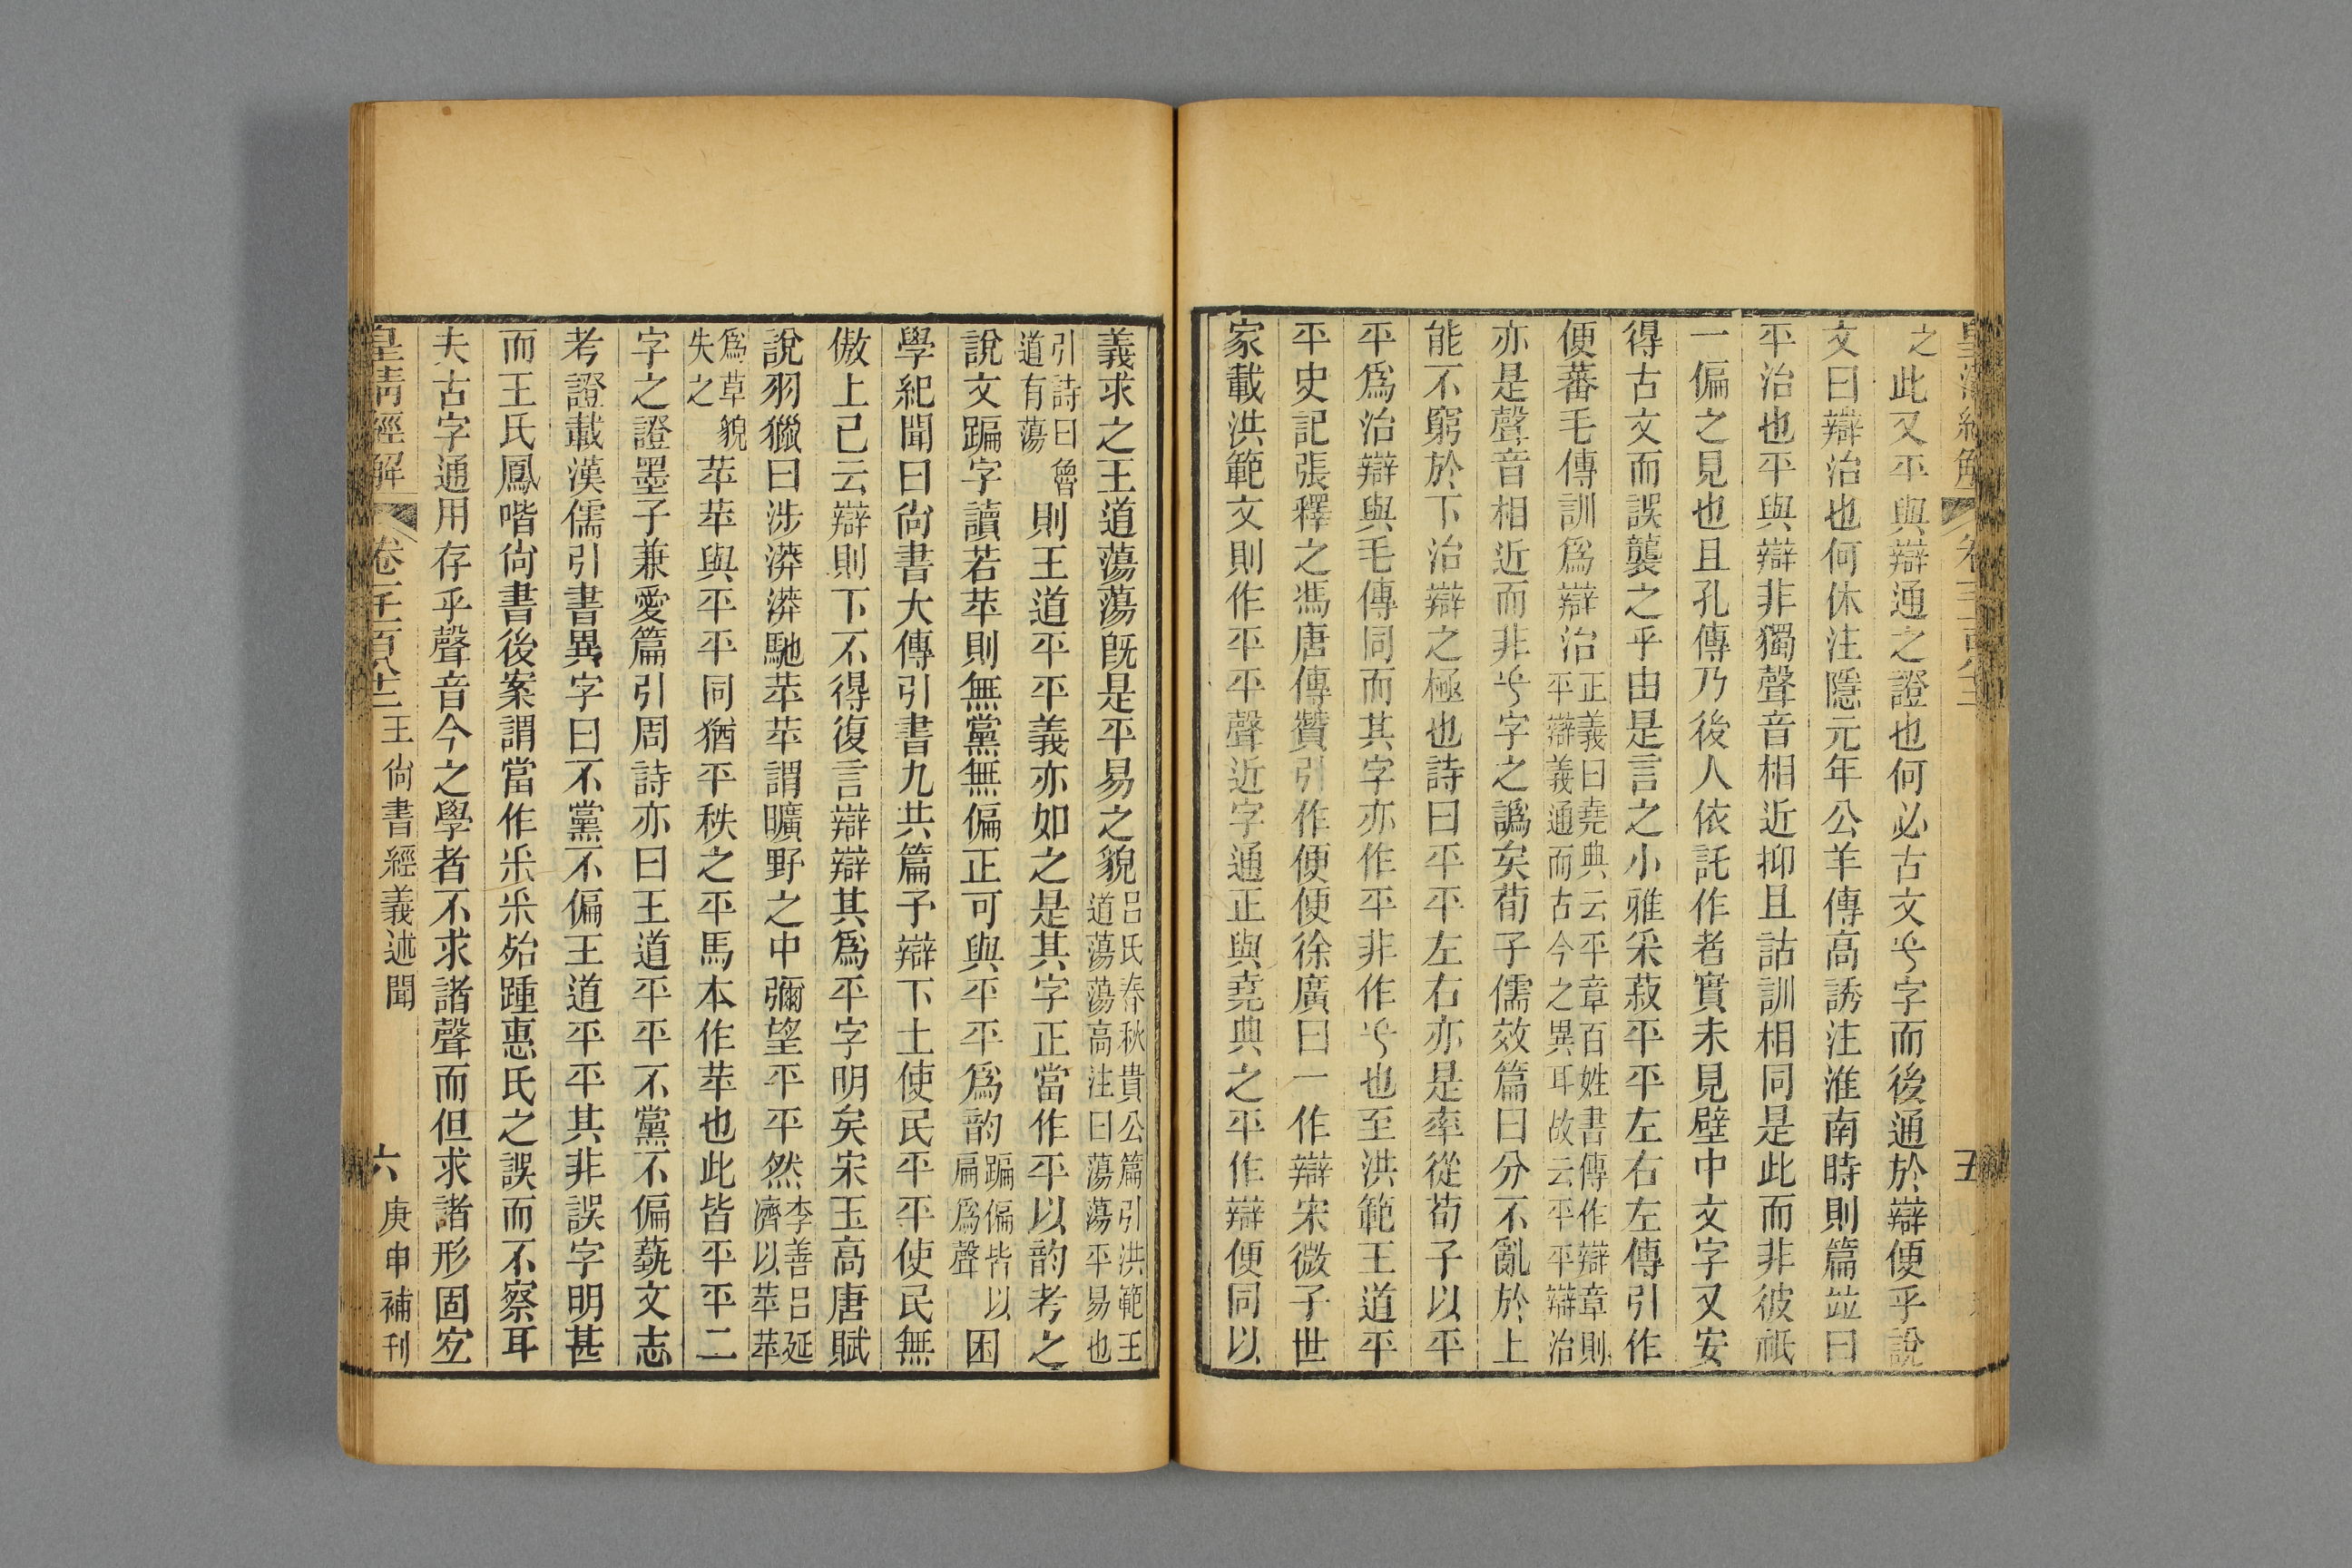 之此又平與辯通之證也何必古文𠀀字而後通於辯便乎說
文曰辯治也何休注隱元年公羊傳高誘注淮南時則篇竝曰
平治也平與辯非獨聲音相近抑且詁訓相同是此而非彼祇
一偏之見也且孔傳乃後人依託作者實未見壁中文字又安
得古文而誤襲之乎由是言之小雅采菽平平左右左傳引作
便蕃毛傳訓爲辯治正義曰堯典云平章百姓書傳作辯章則平辯義通而古今之異耳故云平平辯治
亦是聲音相近而非𠀀字之譌矣荀子儒效篇曰分不亂於上
能不窮於下治辯之極也詩曰平平左右亦是率從荀子以平
平爲治辯與毛傳同而其字亦作平非作𠀀也至洪範王道平
平史記張釋之馮唐傳贊引作便便徐廣曰一作辯宋微子世
家載洪範文則作平平聲近字通正與堯典之平作辯便同以
五
義求之王道蕩蕩旣是平易之貌呂氏春秋貴公篇引洪範王道蕩蕩高注曰蕩蕩平易也
引詩曰魯道有蕩則王道平平義亦如之是其字正當作平以韵考之
說文蹁字讀若苹則無黨無偏正可與平平爲韵蹁偏皆以扁爲聲困
學紀聞曰尙書大傳引書九共篇予辯下土使民平平使民無
傲上已云辯則下不得復言辯辯其爲平字明矣宋玉高唐賦
說羽獵曰涉漭漭馳苹苹謂曠野之中彌望平平然李善呂延濟以苹苹
爲草貌失之苹苹與平平同猶平秩之平馬本作苹也此皆平平二
字之證墨子兼愛篇引周詩亦曰王道平平不黨不偏蓺文志
考證載漢儒引書異字曰不黨不偏王道平平其非誤字明甚
而王氏鳳喈尙書後案謂當作釆釆殆踵惠氏之誤而不察耳
夫古字通用存乎聲音今之學者不求諸聲而但求諸形固宐
皇清經解 卷一千一百八十二 王尙書經義述聞 六 庚申補刊